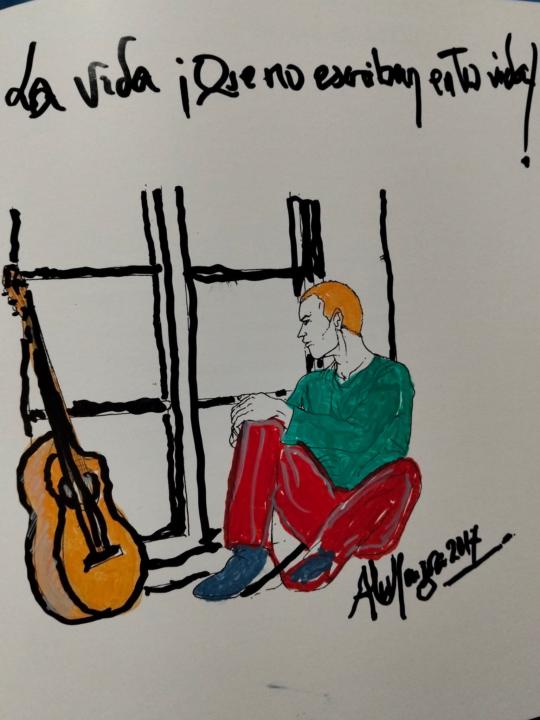 La Vida ¡Que no escriban en Tu vida!
2017